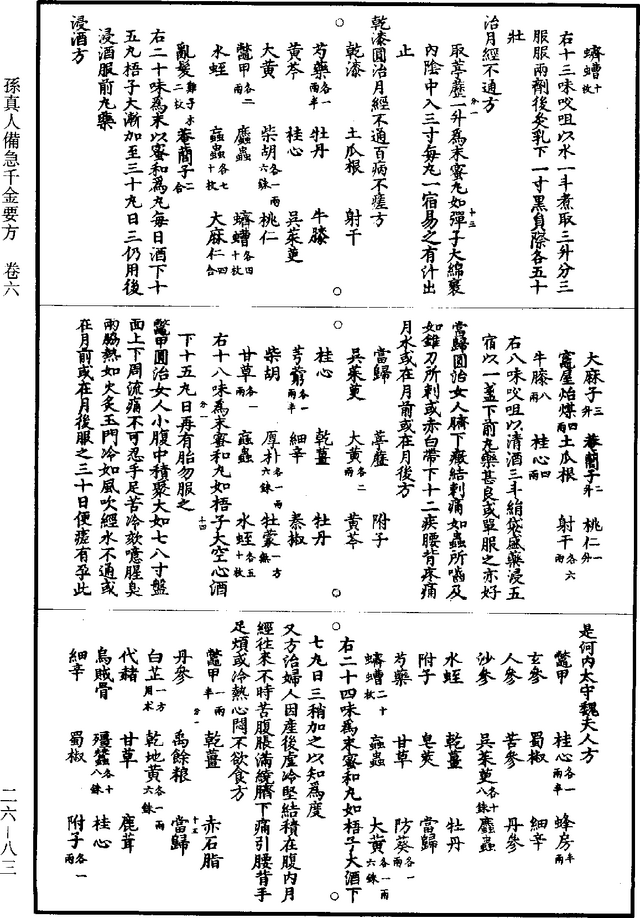 蠐螬十枚
右十三味㕮咀以水一斗煮取三升分三
服服兩劑後灸乳下一寸黑負際各五十
壯
治月經不通方
取葶藶一升為末蜜丸如彈子大綿裹
內陰中入三寸每丸一宿易之有汁出
止
乾漆圓治月經不通百病不瘥方
乾漆 土瓜根 射干
芍藥各一兩半 牡丹 牛膝
黃芩 桂心 吳茱萸
大黃 柴胡各一兩六銖 桃仁
鱉甲各二兩 䗪蟲 蠐螬各四十枚
水蛭 蝱蟲各七十枚 大麻仁四合
亂髮雞子大二枚 菴䕡子二合
右二十味為末以蜜和為丸每日酒下十
五丸梧子大漸加至三十丸日三仍用後
浸酒服前丸藥
浸酒方
大麻子三升 菴䕡子二升 桃仁一升
竈屋炲煤四兩 土瓜根 射干各六兩
牛膝八兩 桂心四兩
右八味㕮咀以清酒三斗絹袋盛藥浸五
宿以一盞下前丸藥甚良或單服之亦好
當歸圓治女人臍下癥結刺痛如蟲所嚙及
如錐刀所刺或赤白帶下十二疾腰背疼痛
月水或在月前或在月後方
當歸 葶藶 附子
吳茱萸 大黃各二兩 黃芩
桂心 乾薑 牡丹
芎藭各一兩半 細辛 秦椒
柴胡 厚朴各一兩六銖 牡蒙一方無
甘草各一兩 䗪蟲 水蛭各五十枚
右十八味為末蜜和丸如梧子大空心酒
下十五丸日再有胎勿服之
鱉甲圓治女人小腹中積聚大如七八寸盤
面上下周流痛不可忍手足苦冷欬噫腥臭
兩脇熱如火炙玉門冷如風吹經水不通或
在月前或在月後服之三十日便瘥有孕此
是何內太守魏夫人方
鱉甲 桂心各一兩半 蜂房半兩
玄參 蜀椒 細辛
人參 苦參 丹參
沙參 吳茱萸各十八銖 䗪蟲
水蛭 乾薑 牡丹
附子 皂莢 當歸
芍藥 甘草 防葵各一兩
蠐螬二十枚 蝱蟲 大黃各一兩六銖
右二十四味為末蜜和丸如梧子大酒下
七丸日三稍加之以知為度
又方治婦人因產後虛冷堅結積在腹內月
經往來不時苦腹脹滿繞臍下痛引腰背手
足煩或冷熱心悶不欲食方
鱉甲一兩半 乾薑 赤石脂
丹參 禹餘粮 當歸
白芷一方用朮 乾地黃各一兩六銖
代赭 甘草 鹿茸
烏賊骨 殭蠶各十八銖 桂心
細辛 蜀椒 附子各一兩
孫真人備急千金要方 卷六
二六-八三